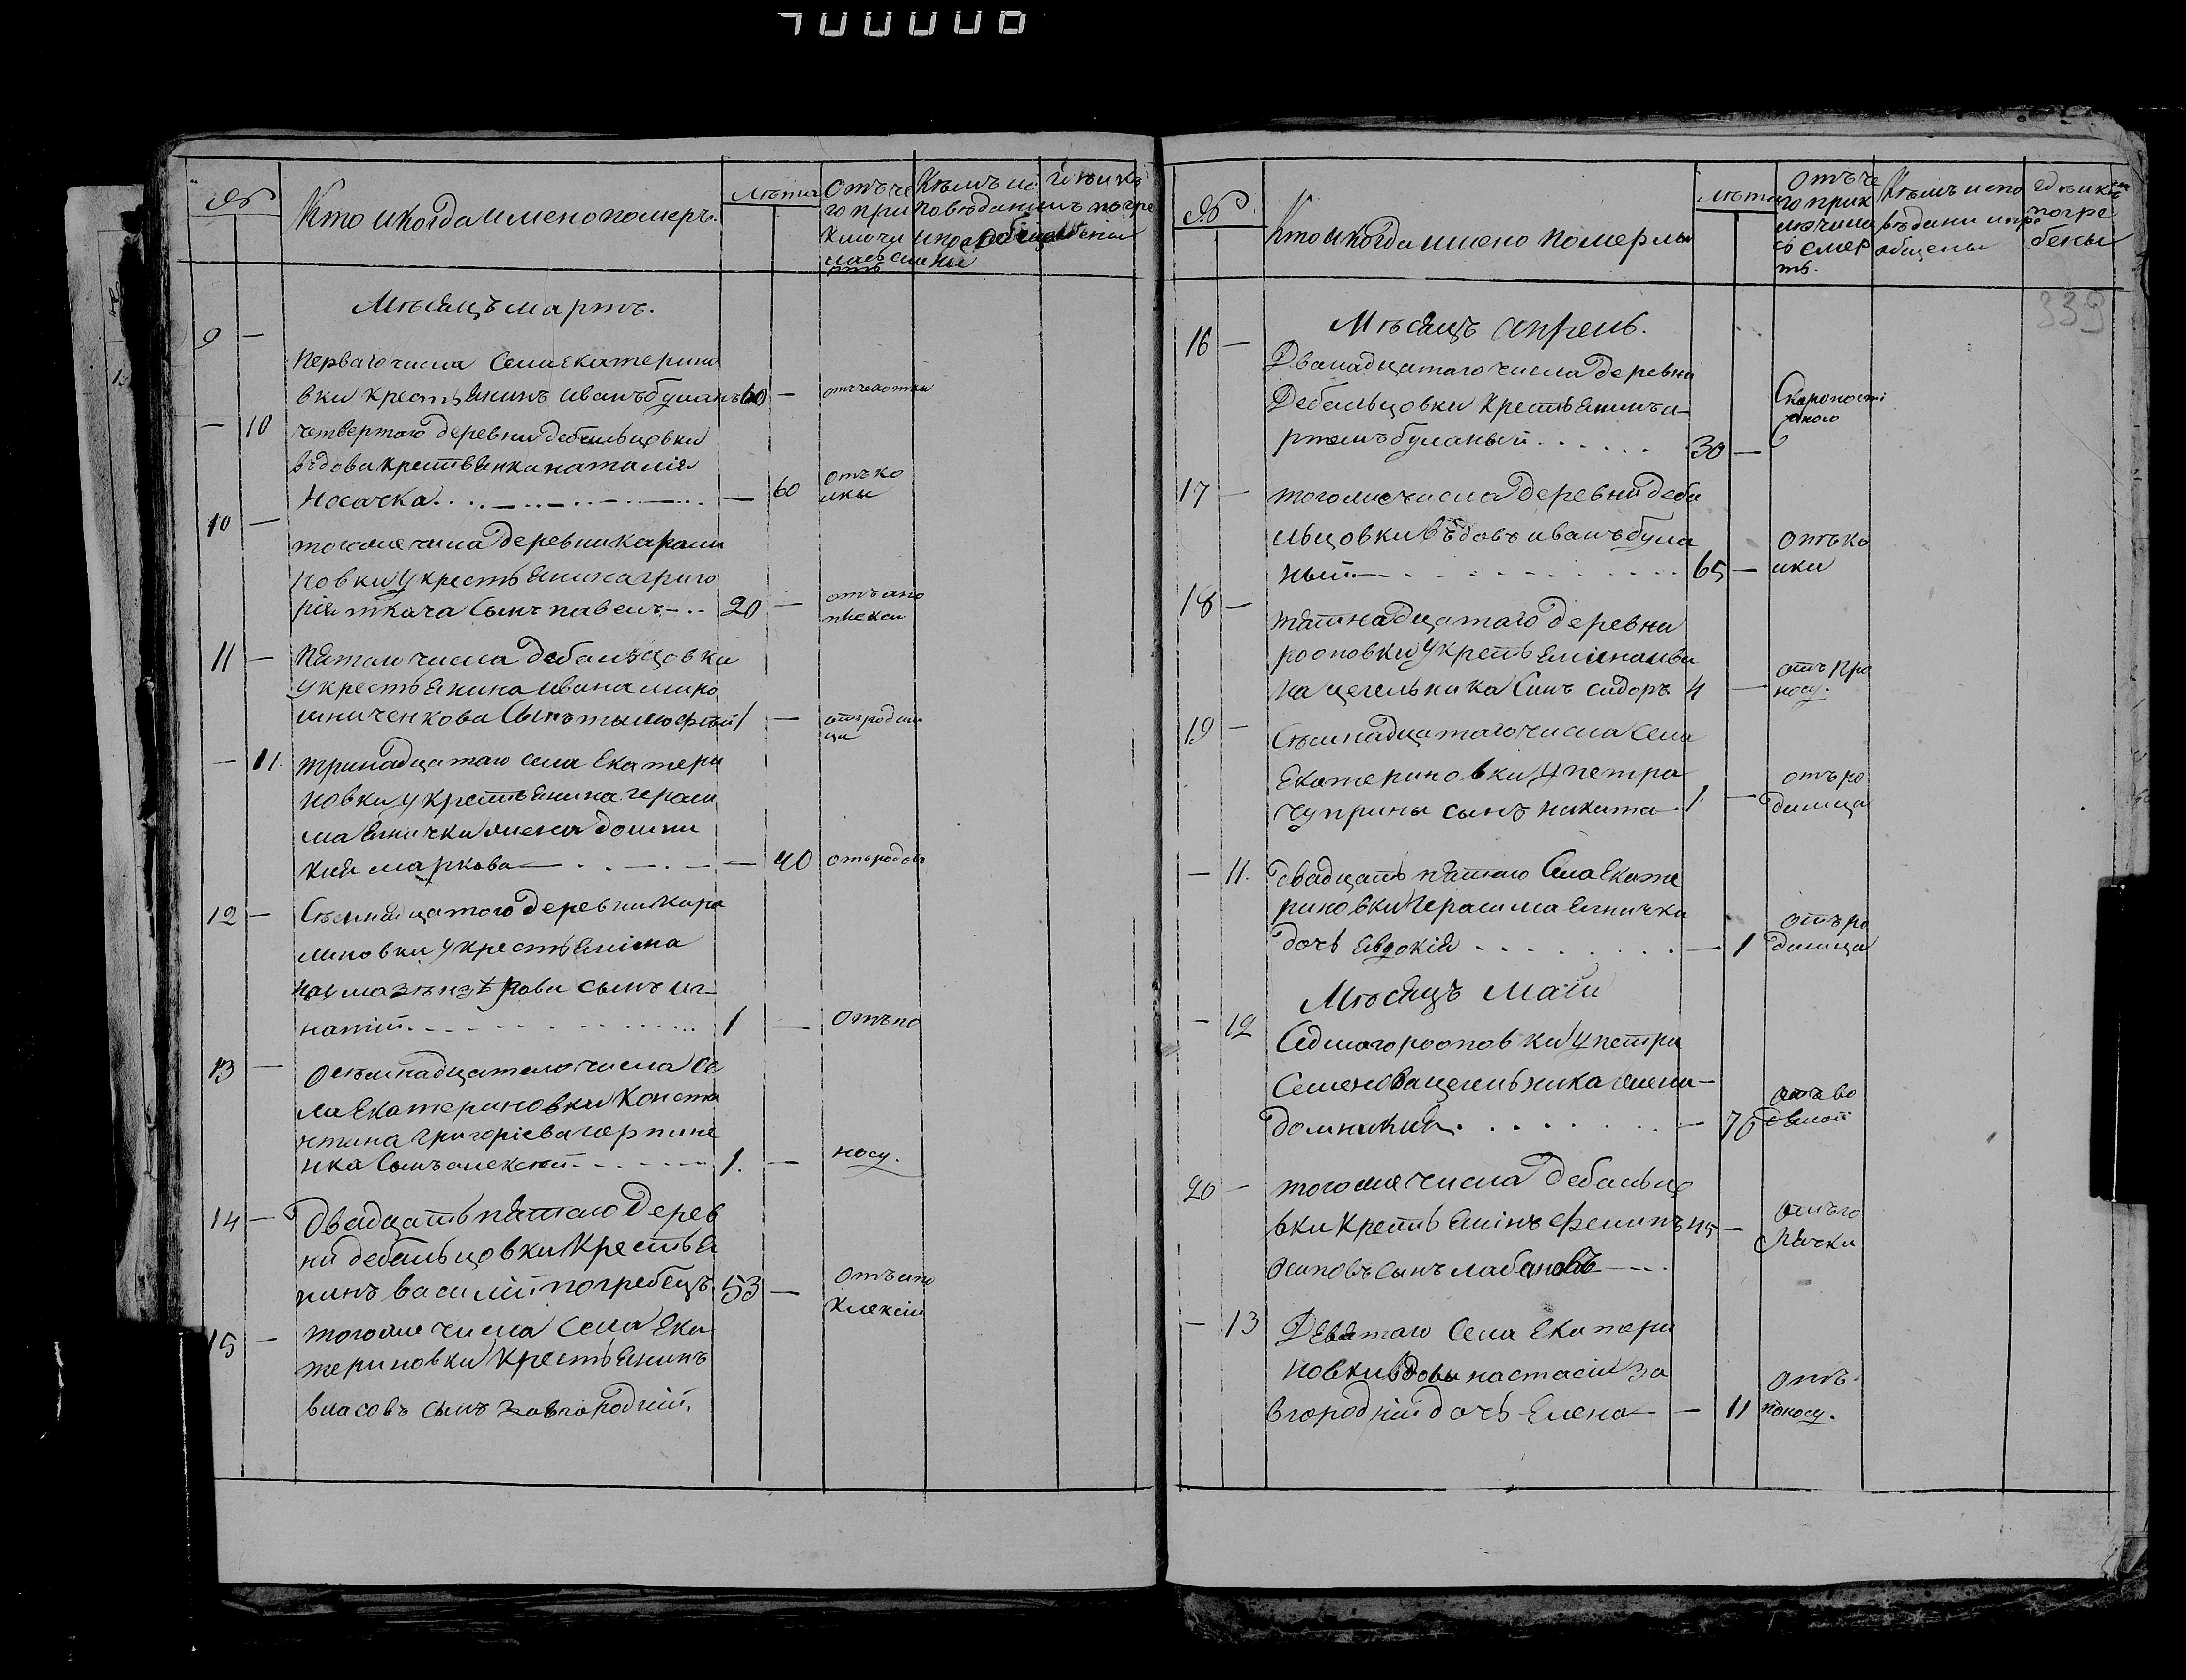 №
Кто и когда имено померъ.
Лѣта
Отъ че
го при
ключи
лась сме
рть
Кѣмъ ис
повѣдан
и пообще
ны
Мѣсяцъ мартъ.
9 —
Перваго числа Села Екатерино
вки крестьянинъ иванъ буланъ 60 — отъ чехотки
— 10 четвертаго деревни дебальцовки
въдова крестьянка наталія
Носачка — 60 отъ ко
лики
10 —
тогоже числа деревни карами
новки у крестьянина григо
рія ткача Сынъ павелъ 20 — отъ апо
плексіи
11 — Пятаго числа дебальцовки
у крестьянина ивана миро
шниченкова Сынъ тимофѣй 1 — отъ родим
ца
— 11. тринадцатаго села Екатери
новки у крестьянина гераси
ма Ельнички жена домни
кия маркова — 40 отъ родовъ
12 — Съемнадцатого деревни кара
миновки у крестьянина
сынъ иг
натій 1 — Отъ по
13 — Осемнадцатаго числа Се
ла Екатериновки Конста
нтина Григоріева
нка Сынъ алексѣй 1. — носу.
14 — Двадцать пятаго Дерев
ни дебальцовки Крестья
нинъ василій погребецъ 53 — Отъ апо
плексіи
15 — тогоже числа Села Ека
териновки Крестьянинъ
власовъ сынъ Завгородній.
№
Кто и когда имено померли
Лѣта
Отъ че
го прик
лючила
съ смер
ть.
Кѣмъ испо
вѣдани и прі
общены
гдѣ и кѣмъ
погре
бены
339
Мѣсяцъ апрель.
16 —
Дванадцатаго числа деревни
Дебальцовки Крестьянинъ а-
ртемъ буланый 30 — Скоропости
жного
17 — тогоже числа деревни деба
льцовки въдовъ иванъ була
ный 65 — Отъ ко
лики
18 —
пятнадцатаго деревни
рооповки у крестьянина ива
на цегельника Синъ сидоръ 4 — отъ по
носу.
19 — Съемнадцатаго числа Села
Екатериновки у петра
Чуприны сынъ никита 1. — отъ ро
димца
— 11. двадцать пятаго Села Екате
риновки Герасима Ельнички
дочь Евдокія — 1 отъ ро
димца
Мѣсяцъ Маій
— 12 Седмаго рооповки у петра
Семенова цегельника жена
домникия — 70 отъ во
дяной
20 — тогоже числа дебальцо
вки Крестьянинъ феминъ 45 — отъ го
рячки
Осиповъ сынъ лабановъ
— 13 Девятаго Села Екатери
новки вдовы настасіи За
вгородній дочь Елена — 11 Отъ
поносу.